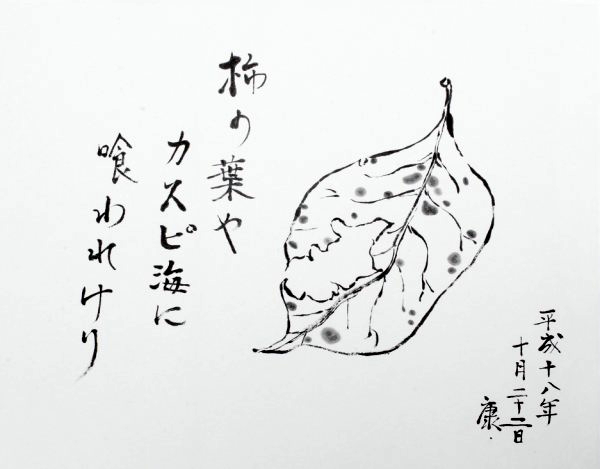 柿の葉や
カスピ海に
喰われけり
平成十八年
十月二十二日
康